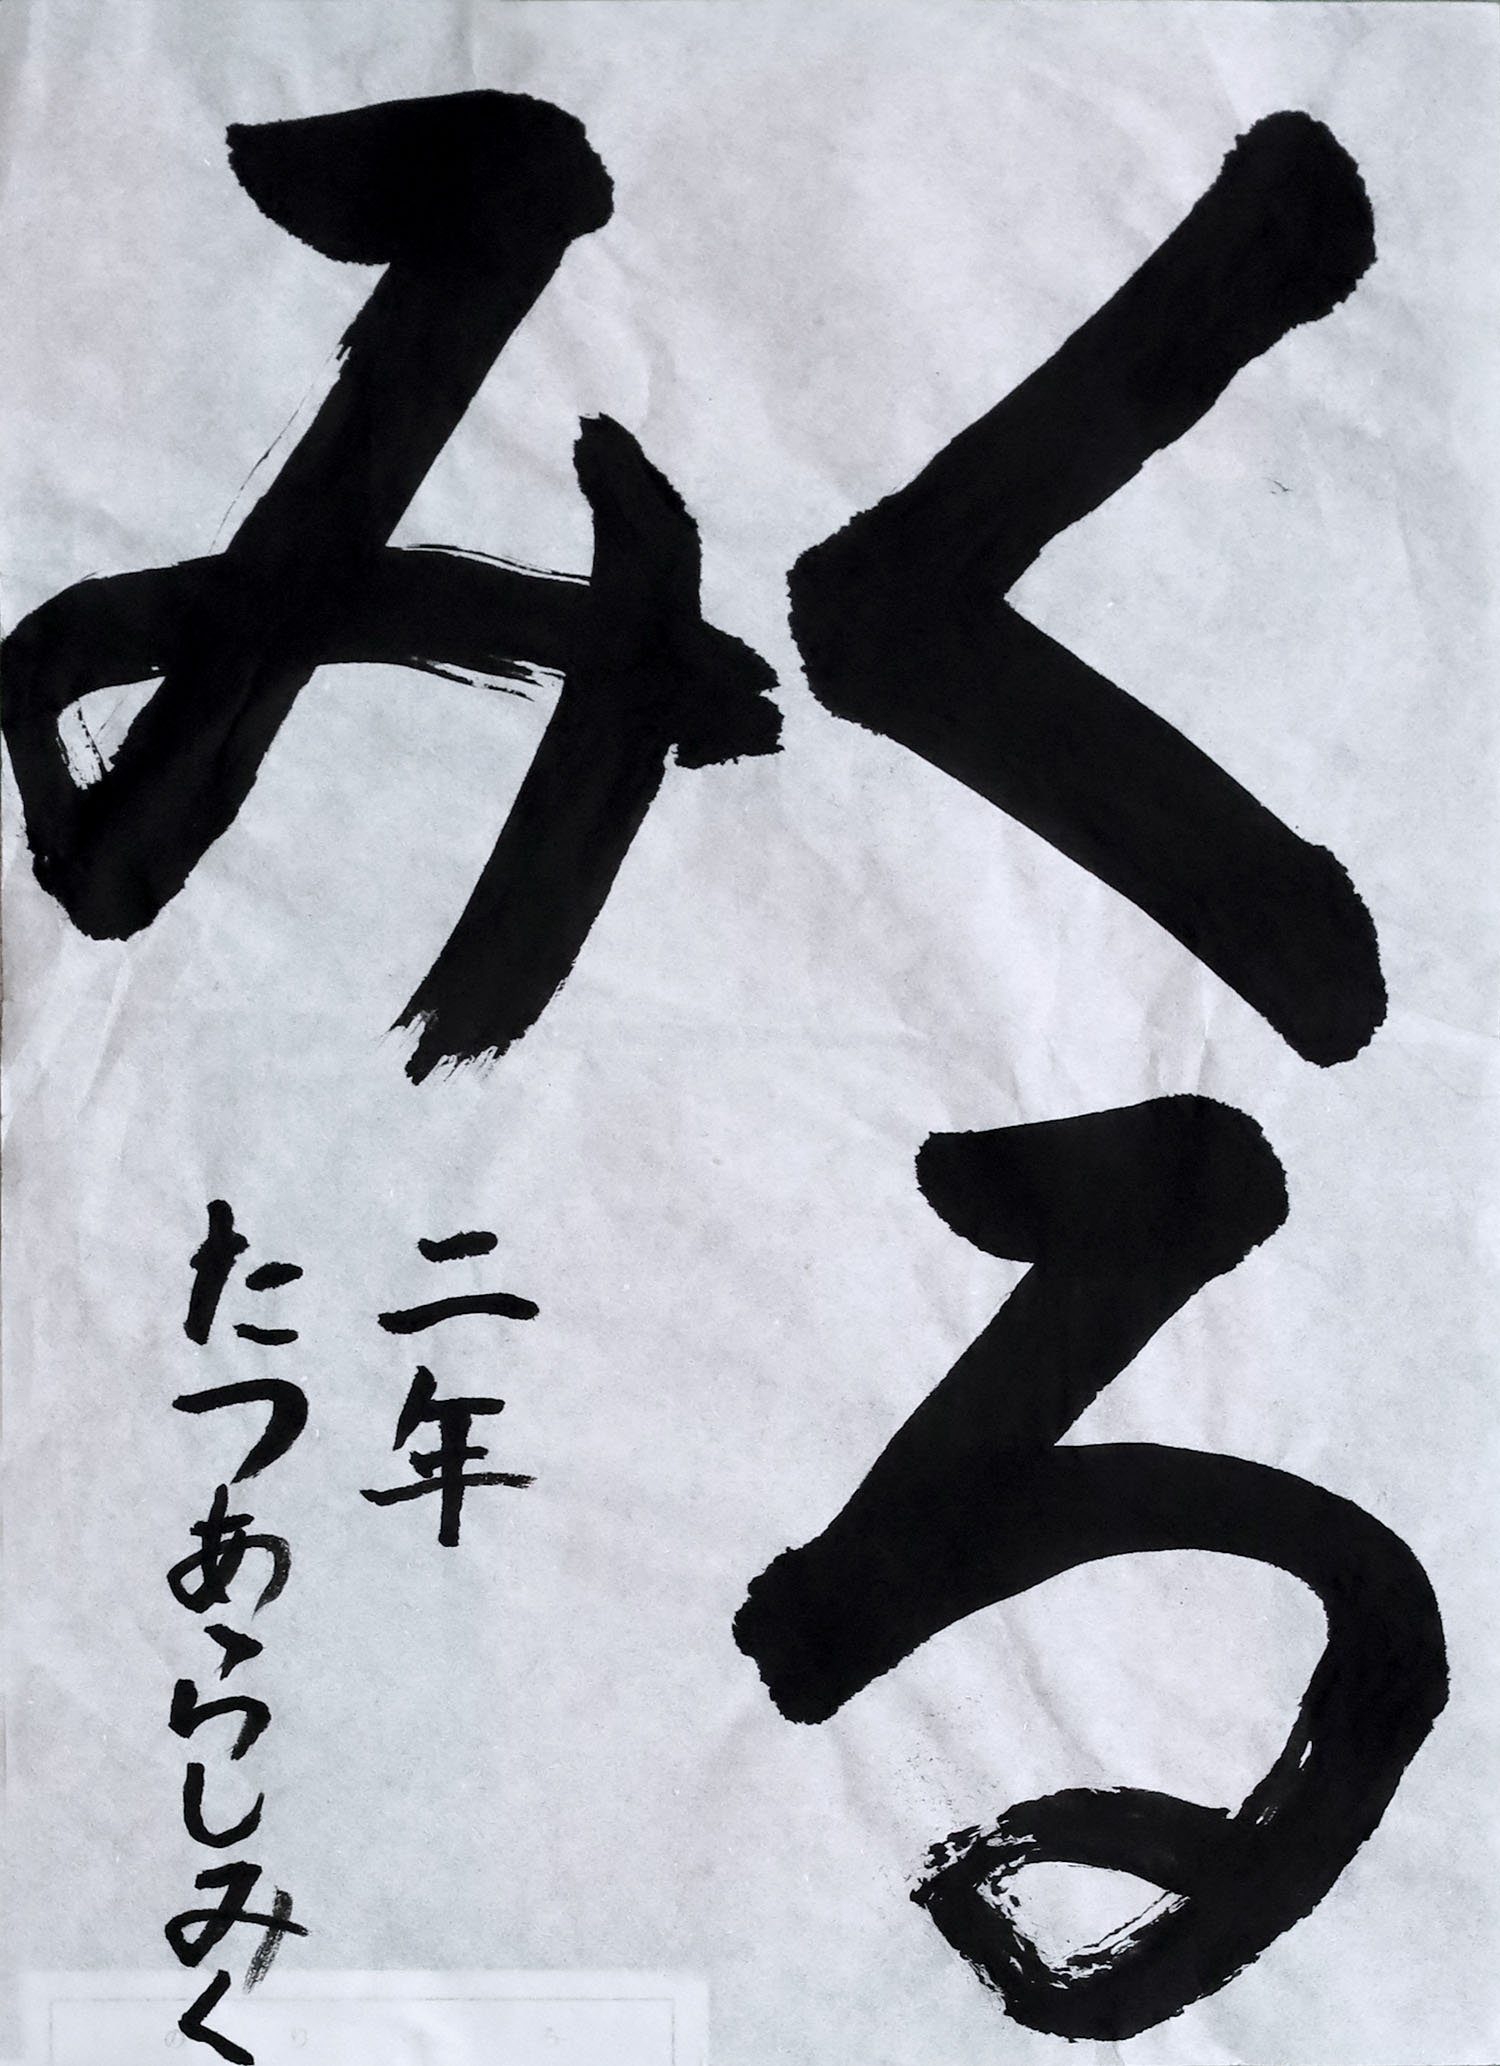 くる
み
二年
たつあらしみく